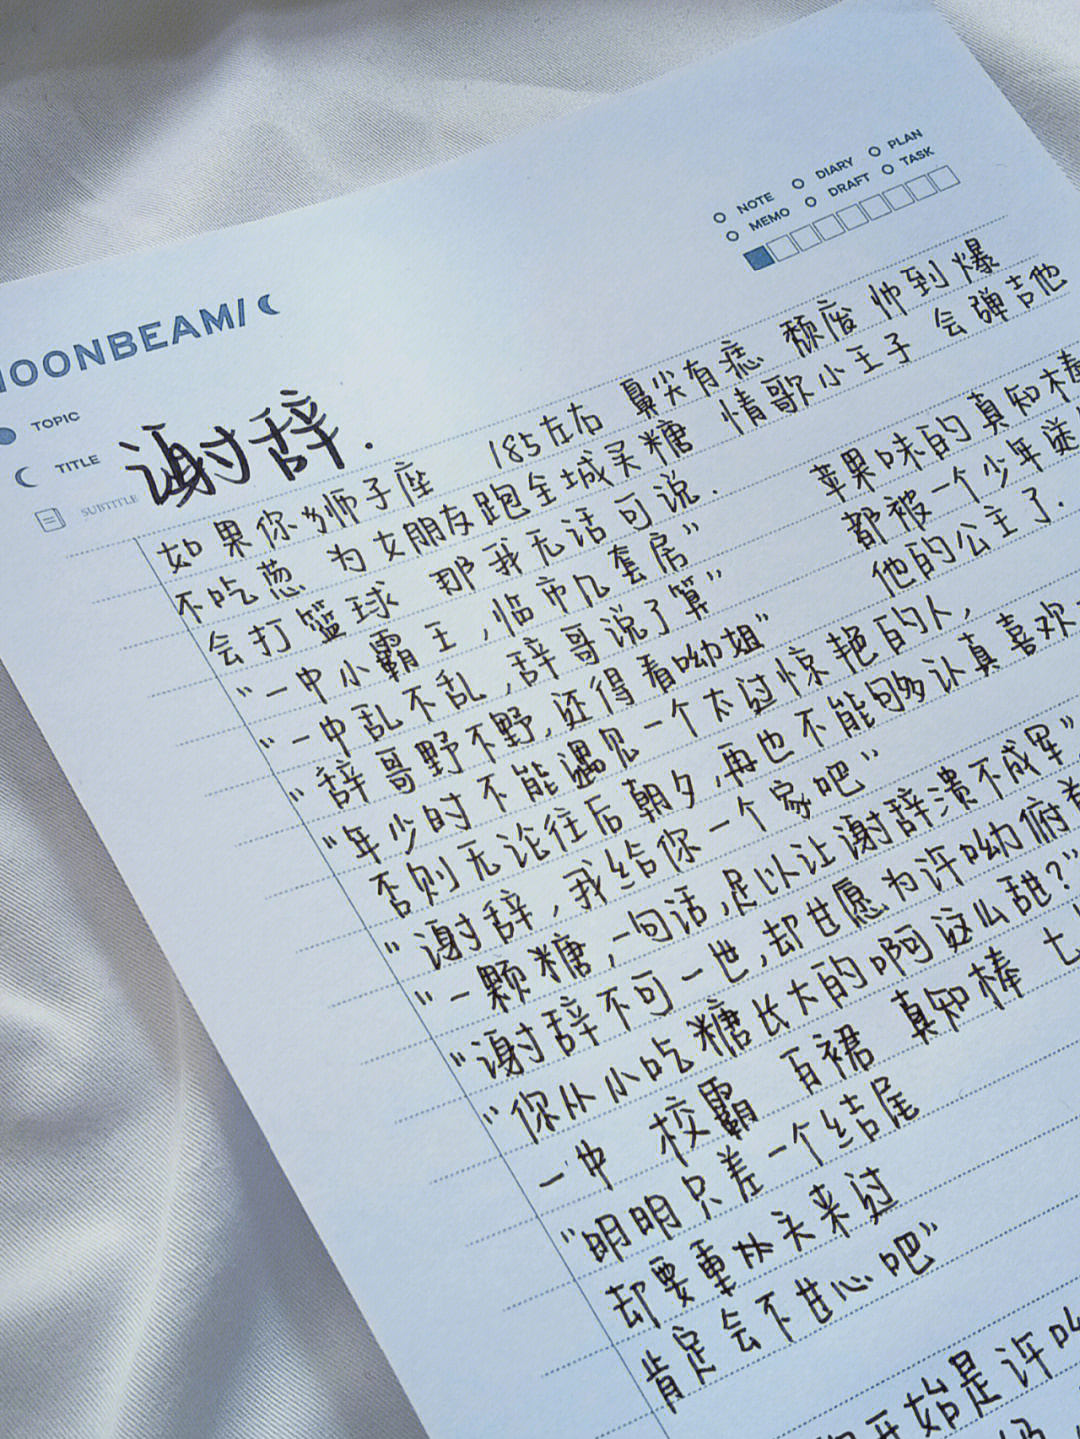 NOTE DIARY PLAN
MEMO DRAFT TASK
MOONBEAM
TOPIC
TITLE
SUBTITLE
谢辞.
如果你的狮子座 185左右 鼻尖有痣 颓废 帅到爆
不吃葱 为女朋友跑全城买糖 情歌小王子 会弹吉他
会打篮球 那我无话可说. 苹果味的真知棒
"一中小霸王,临市几套房" 都被一个少年送
"一中乱不乱,辞哥说了算" 他的公主了.
"辞哥野不野,还得看呦姐"
"年少时不能遇见一个太过惊艳的人,
否则无论往后朝夕,再也不能够认真喜欢
"谢辞,我给你一个家吧"
"一颗糖,一句话,足以让谢辞溃不成军"
"谢辞不可一世,却甘愿为许呦俯首
"你从小吃糖长大的啊这么甜?"
一中 校霸 百褶裙 真知棒 七
"明明只差一个结尾
却要重头来过
肯定会不甘心吧"
开始是许呦